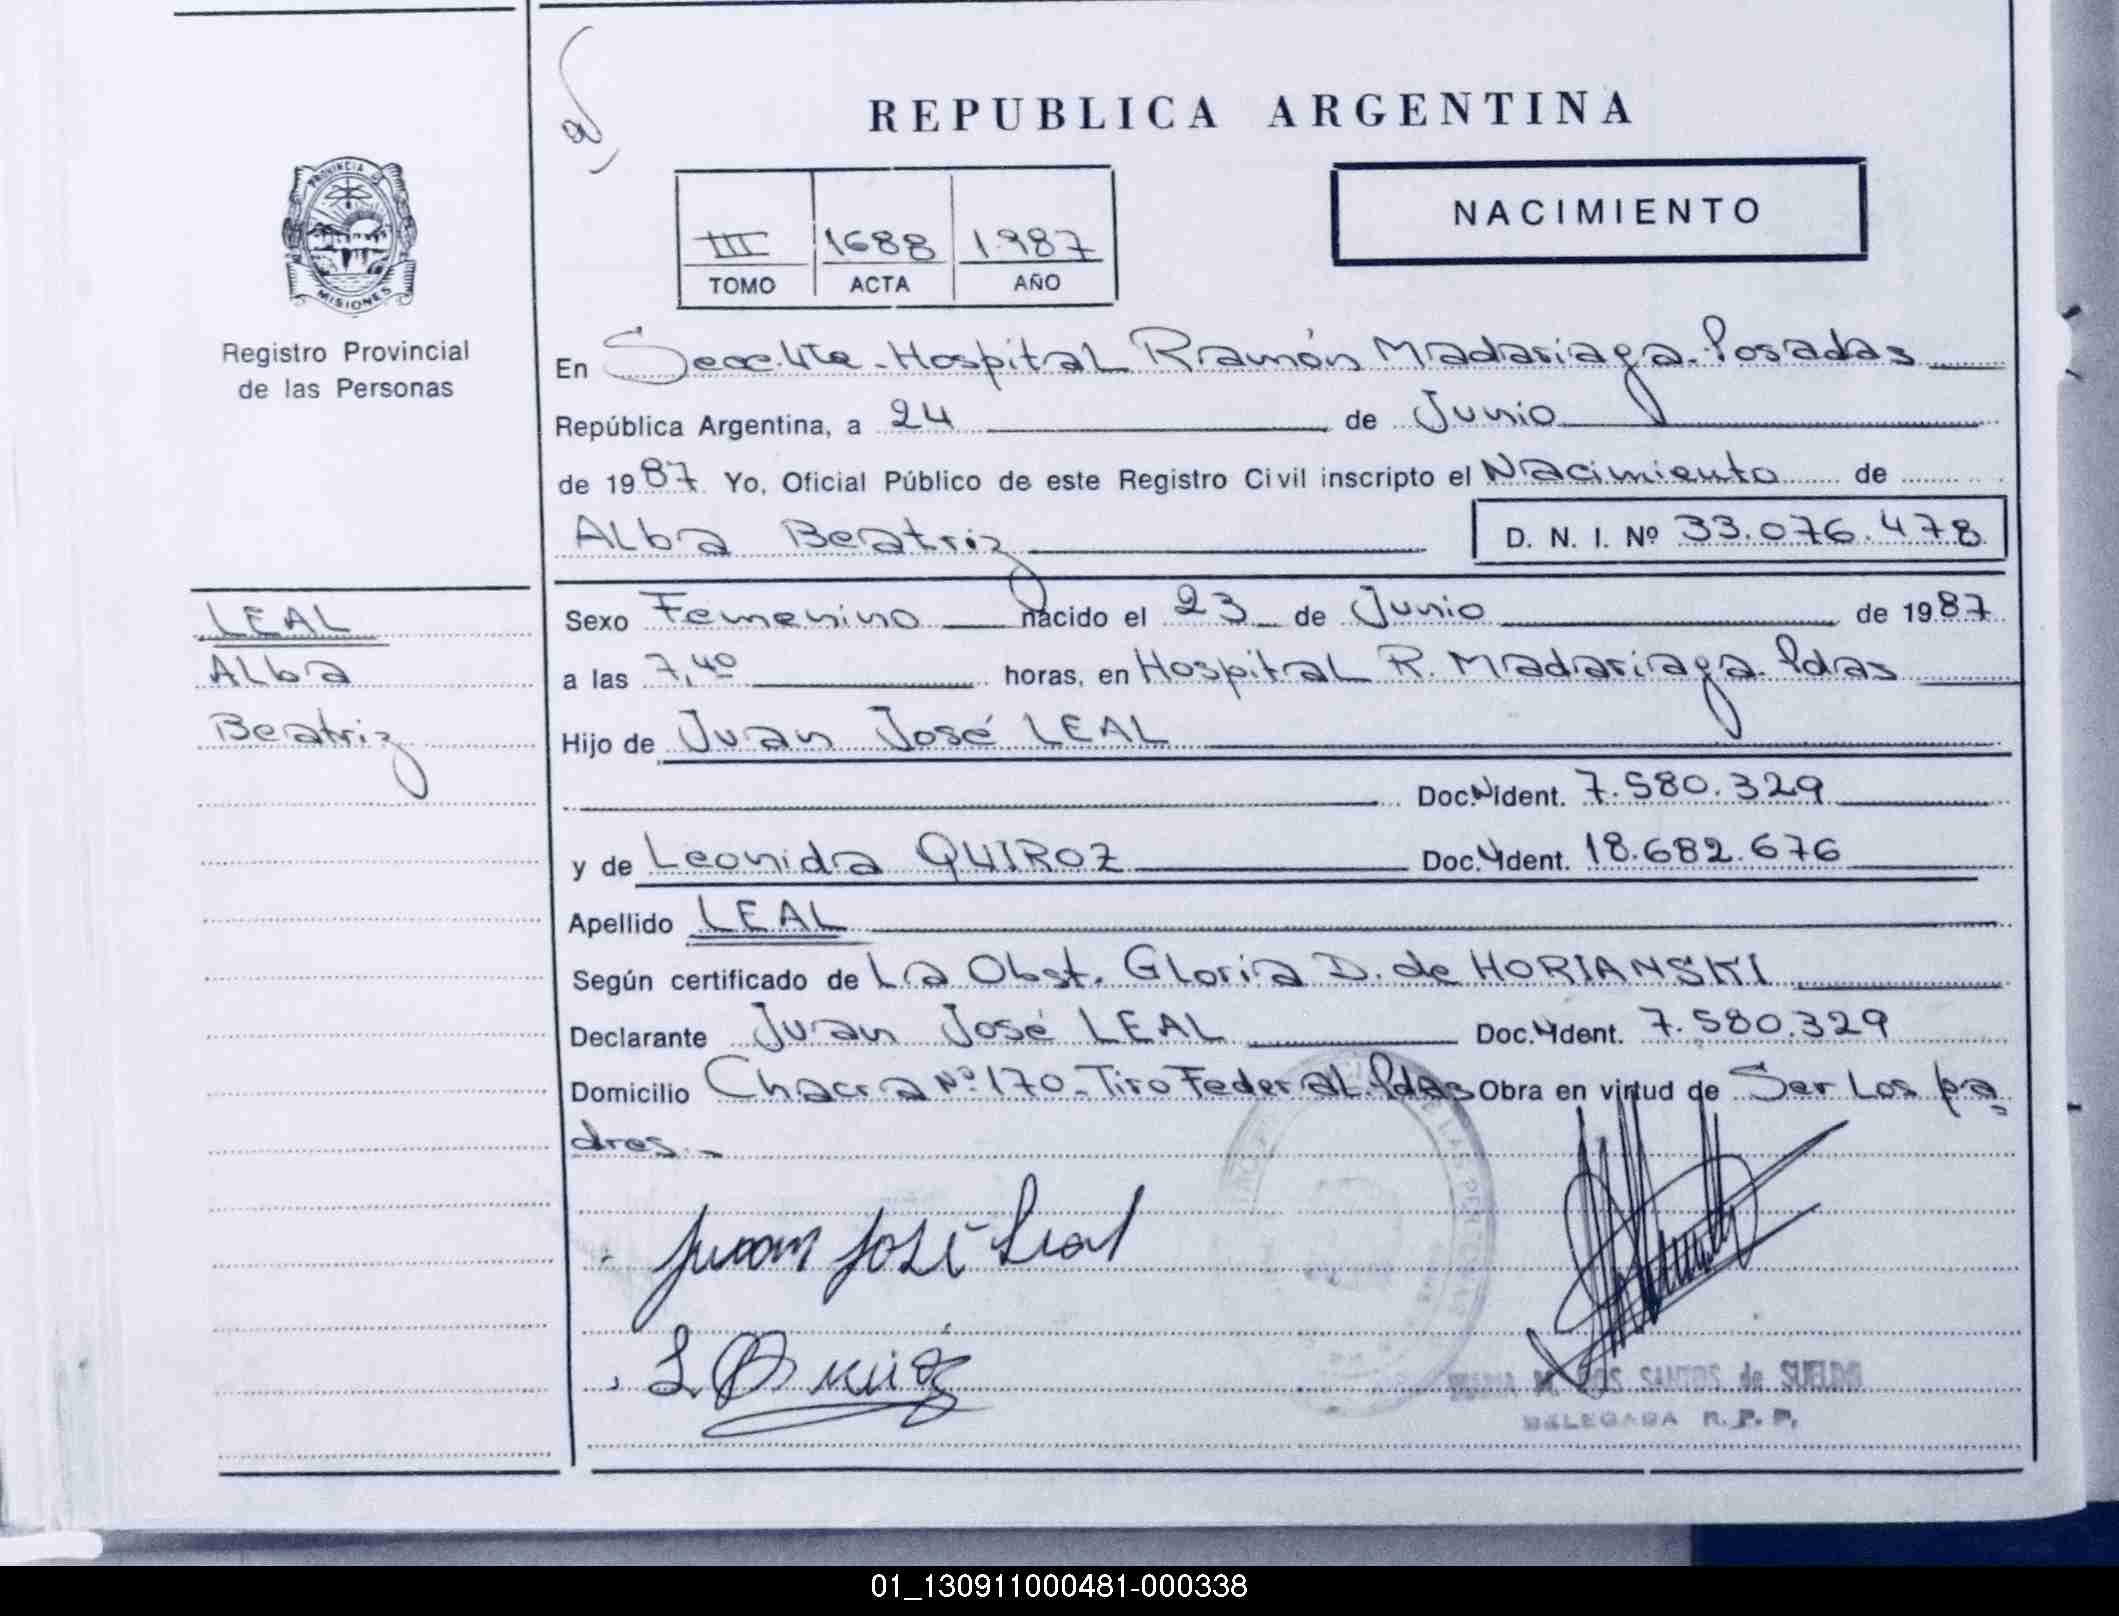 REPUBLICA ARGENTINA
NACIMIENTO
III 1688 1987
TOMO ACTA AÑO
PROVINCIA DE
MISIONES
Registro Provincial
de las Personas
LEAL
Alba
Beatriz
En Secc. 4ta - Hospital Ramón Madariaga - Posadas
República Argentina, a 24 de Junio
de 1987 Yo, Oficial Público de este Registro Civil inscripto el Nacimiento de
Alba Beatriz D. N. I. Nº 33.076.478
Sexo Femenino nacido el 23 de Junio de 1987
a las 7,40 horas, en Hospital R. Madariaga - Pdas
Hijo de Juan José LEAL
Doc. Ident. 7.580.329
y de Leonida QUIROZ Doc. Ident. 18.682.676
Apellido LEAL
Según certificado de La Obst. Gloria D. de HORIANSKI
Declarante Juan José LEAL Doc. Ident. 7.580.329
Domicilio Chacra Nº 170 - Tiro Federal. Pdas Obra en virtud de Ser Los pa
dres.-
Juan José Leal
DOS SANTOS de
DELEGADA R. P. P.
01_130911000481-000338